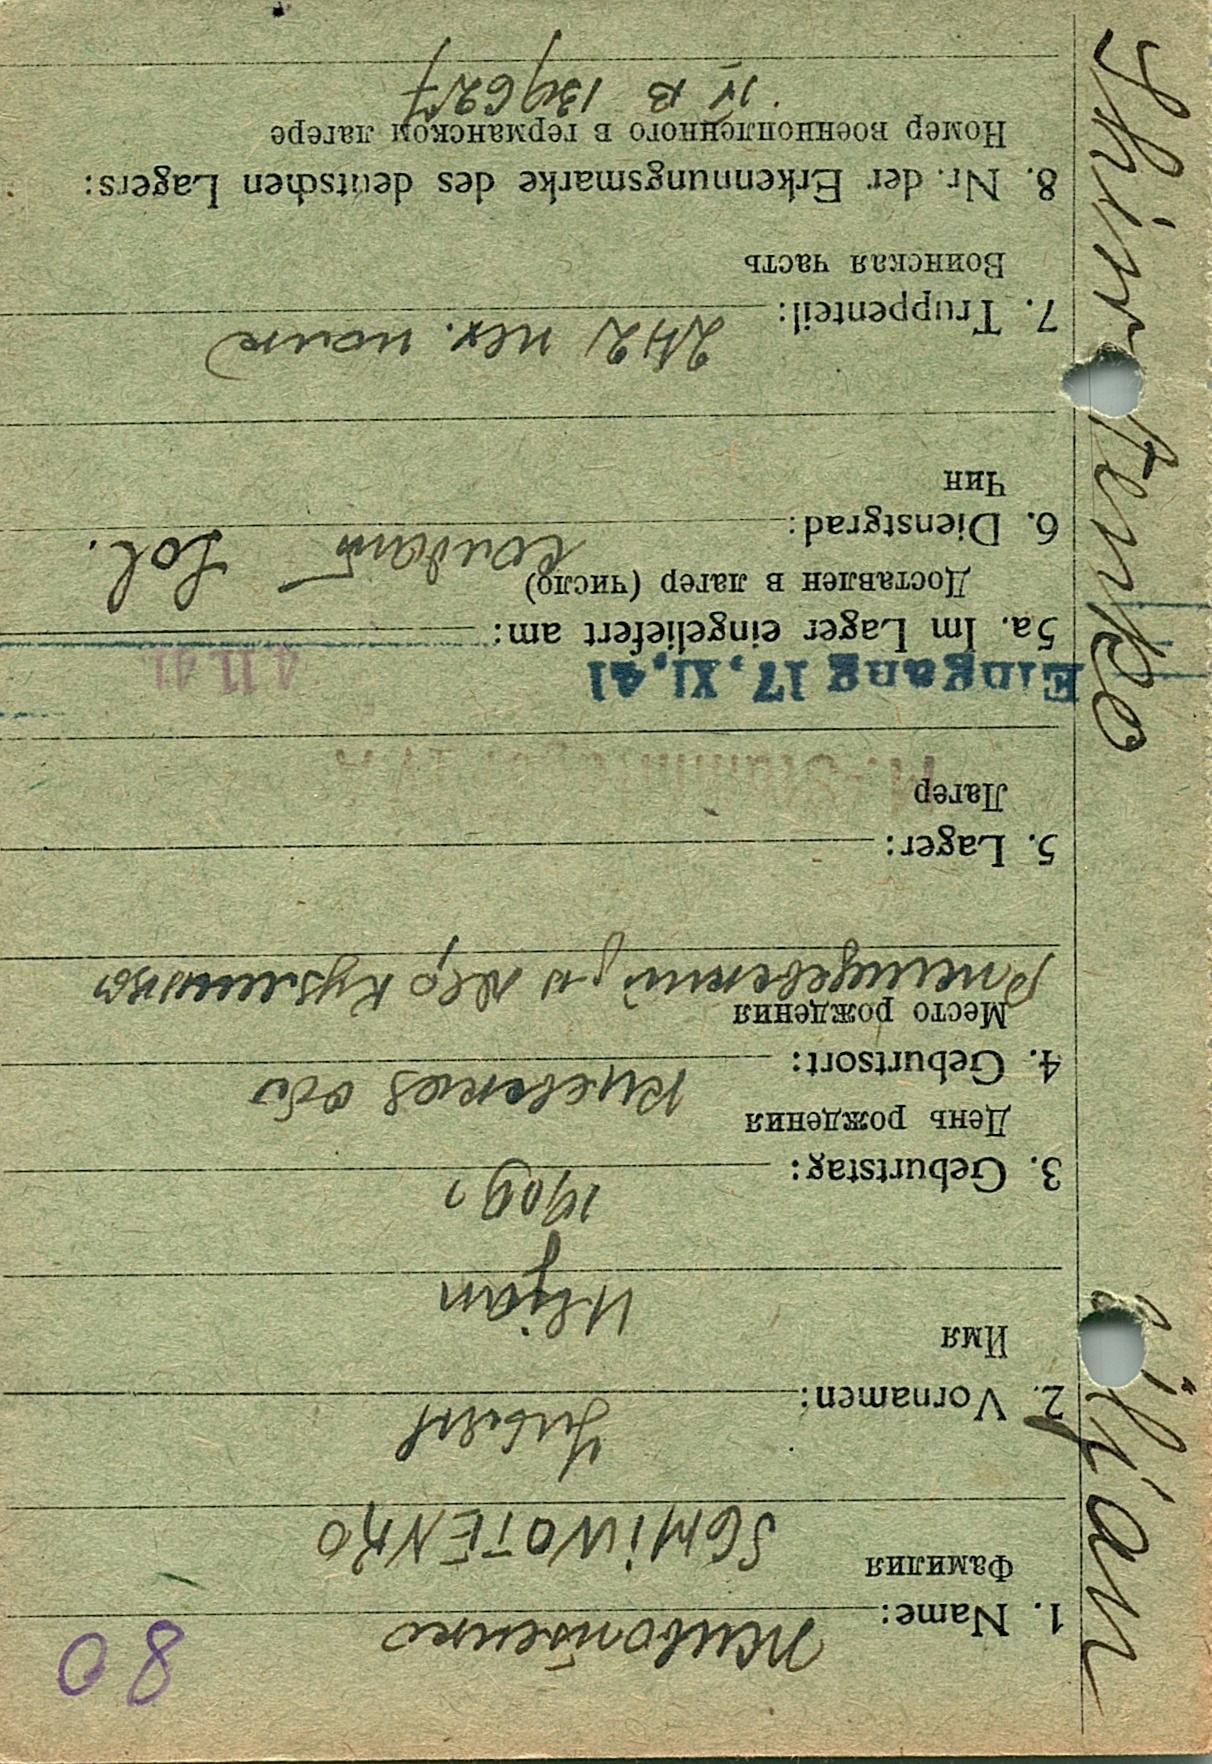 80
1. Name: Животенко
Фамилия
SCHIWOTENKO
2. Vornamen: Ульян
Имя
Uljan
3. Geburtstag: 1909 г
День рождения
4. Geburtsort: Киевская обл
Место рождения
Ржищевский р-н дер
5. Lager:
Лагер
M.-Stammlager IV B
Eingang 17. XI. 41
4 11 41
5a. Im Lager eingeliefert am:
Доставлен в лагер (число)
6. Dienstgrad: солдат Sol.
Чин
7. Truppenteil: 242 пех. полк
Воинская часть
8. Nr. der Erkennungsmarke des deutschen Lagers:
Номер военнопленного в германском лагере
IV B 139627
Uljan